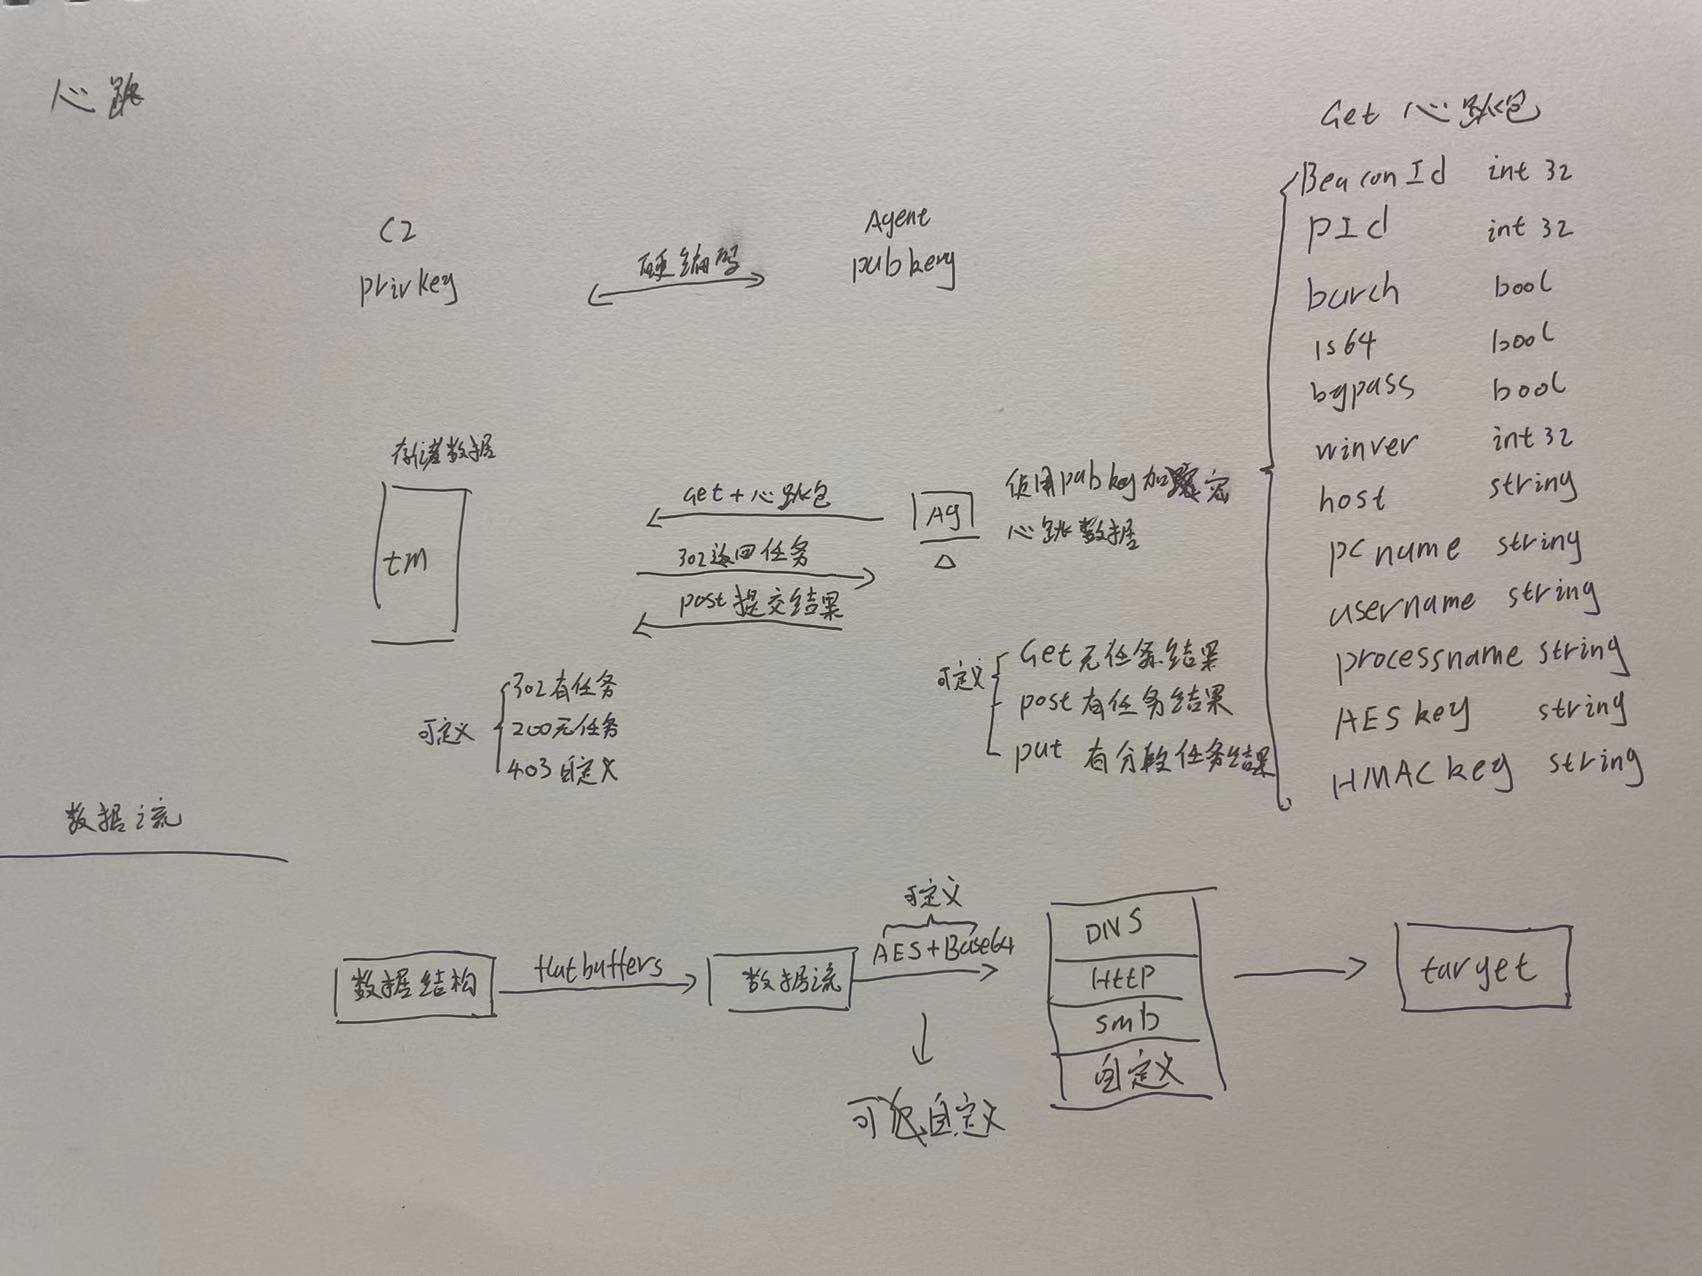 心跳
C2
privkey
硬编码
Agent
pubkey
存储数据
tm
Get + 心跳包
302返回任务
post提交结果
Ag
使用pubkey加密
心跳数据
可定义
302有任务
200无任务
403自定义
可定义
Get 无任务结果
post 有任务结果
put 有分段任务结果
Get 心跳包
BeaconId int 32
PId int 32
barch bool
is64 bool
bypass bool
winver int 32
host string
PCname string
username string
processname string
AES key string
HMAC key string
数据流
数据结构
flatbuffers
数据流
可定义
AES+Base64
可自定义
DNS
Http
smb
自定义
target